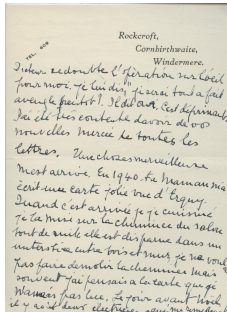 TEL. 608
Rockcroft,
Cornbirthwaite,
Windermere.
redoute l'opération sur l'oeil
pour moi. je lui dis, "je serai tout à fait
aveugle bientôt". Il dit oui, c'est déprimant.
J'ai été très contente d'avoir de vos
nouvelles merci de toutes les
lettres. Une chose merveilleuse
m'est arrivé. En 1940. Ta Maman m'a
écrit une carte jolie vue d'Erquy.
Quand c'est arrivé je
je l'ai mise sur la cheminée du salon
tout de suite elle est disparue dans un
entre bois et mur je ne
pas faire demolir la cheminée mais
souvent j'ai pensais à la carte que ta
Maman pas lue. Le jour avant Noël
il y a